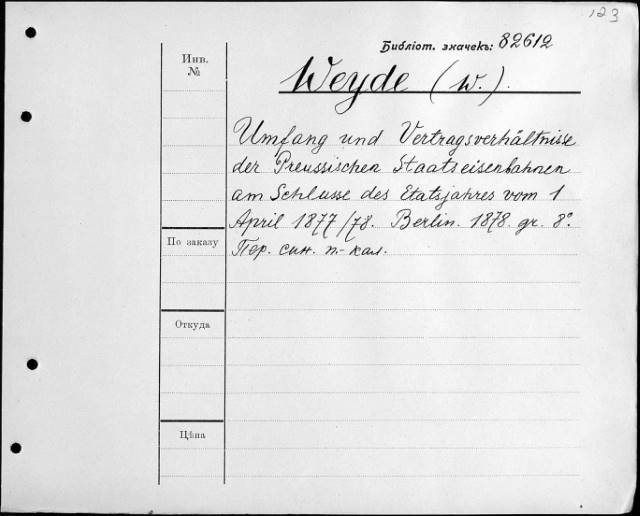 123
Библіот. значекъ: 82612
Инв.
№
Weyde (W.).
Umfang und Vertragsverhältnisse
der Preussischen Staatseisenbahnen
am Schlusse des Etatsjahres vom 1
April 1877/78. Berlin. 1878. gr. 8°.
Пер. син. п.-кал.
По заказу
Откуда
Цѣна